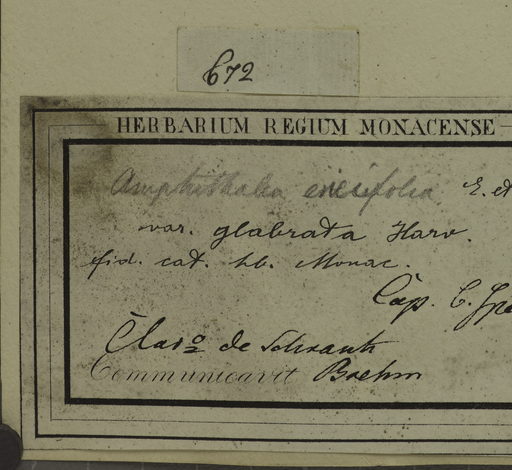 672
HERBARIUM REGIUM MONACENSE
Amphithalea ericifolia E. et
var. glabrata Harv.
fid. cat. hb. Monac.
Cap. C.
Claro de Schrank
Communicavit Boehm